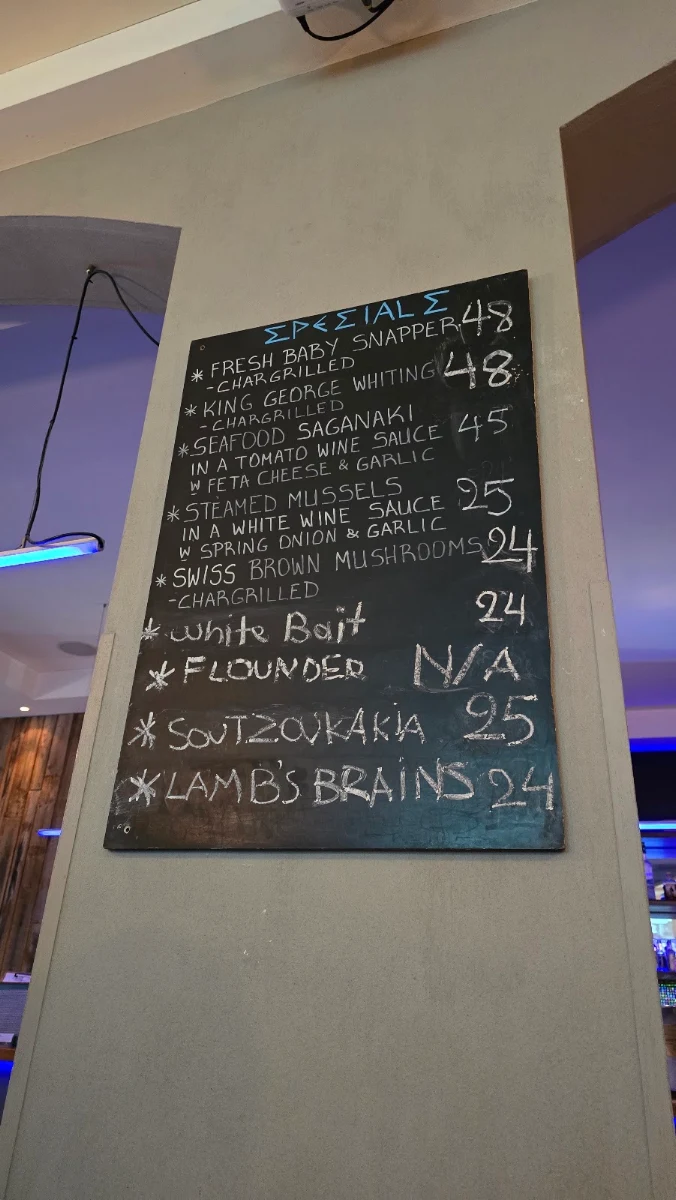 ΣPEΣIALΣ
* FRESH BABY SNAPPER 48
-CHARGRILLED
* KING GEORGE WHITING 48
-CHARGRILLED
* SEAFOOD SAGANAKI 45
IN A TOMATO WINE SAUCE
W FETA CHEESE & GARLIC
* STEAMED MUSSELS 25
IN A WHITE WINE SAUCE
W SPRING ONION & GARLIC
* SWISS BROWN MUSHROOMS 24
-CHARGRILLED
* White Bait 24
* FLOUNDER N/A
* SOUTZOUKAKIA 25
* LAMB'S BRAINS 24